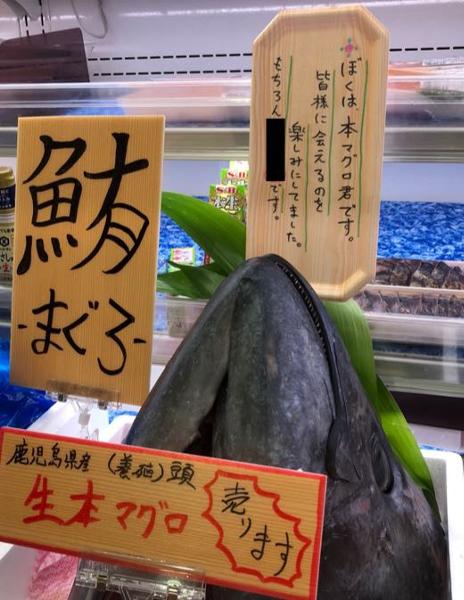 ぼくは、本マグロ君です。
皆様に会えるのを
楽しみにしてました。
もちろん
です。
鮪
-まぐろ-
鹿児島県産(養殖)頭
生本マグロ
売ります
S&B